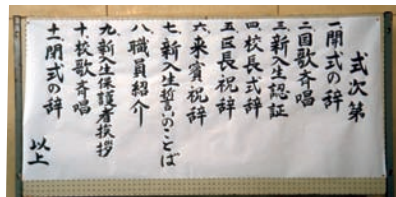 式次第
一、開式の辞
二、国歌斉唱
三、新入生認証
四、校長式辞
五、区長祝辞
六、来賓祝辞
七、新入生誓いのことば
八、職員紹介
九、新入生保護者挨拶
十、校歌斉唱
十一、閉式の辞
以上